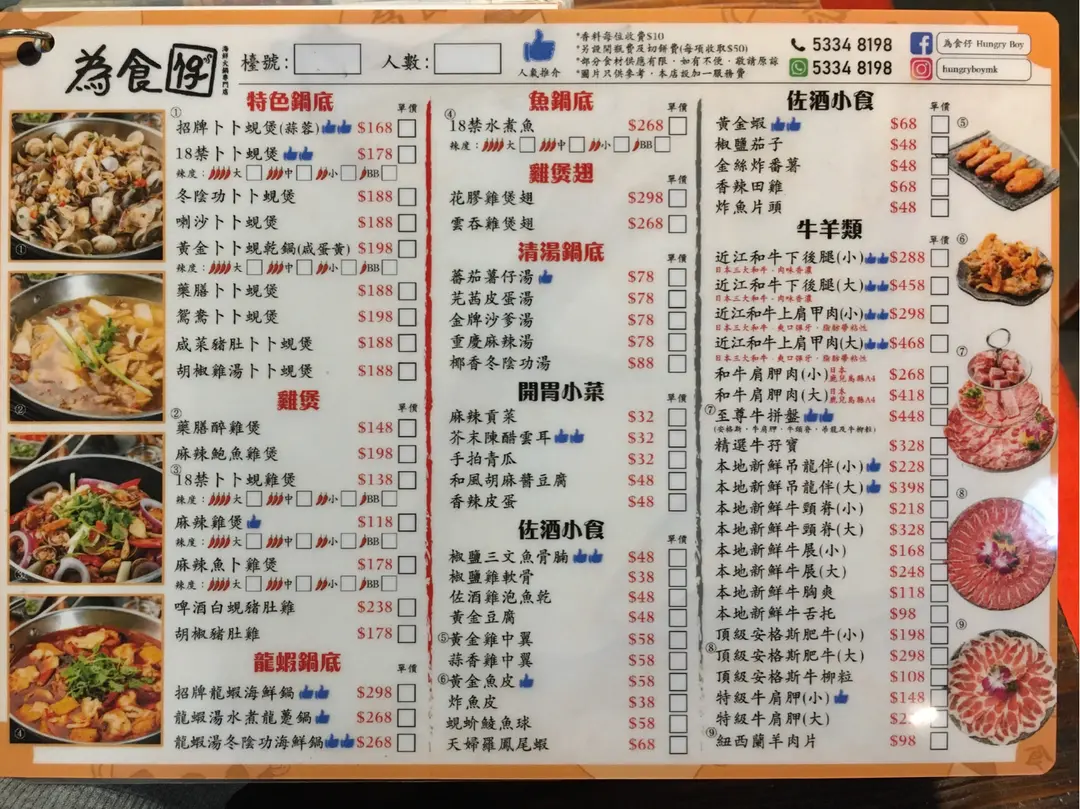 為食仔
海鮮火鍋專門店
檯號：
人數：
人氣推介
*香料每位收費$10
*另設開瓶費及切餅費(每項收取$50)
*部分食材供應有限，如有不便，敬請原諒
*圖片只供參考，本店設加一服務費
5334 8198
5334 8198
為食仔 Hungry Boy
hungryboymk
特色鍋底
單價
① 招牌卜卜蜆煲(蒜蓉) $168
18禁卜卜蜆煲 $178
辣度： 大 中 小 BB
冬陰功卜卜蜆煲 $188
喇沙卜卜蜆煲 $188
黃金卜卜蜆乾鍋(咸蛋黃) $198
辣度： 大 中 小 BB
藥膳卜卜蜆煲 $188
鴛鴦卜卜蜆煲 $198
咸菜豬肚卜卜蜆煲 $188
胡椒雞湯卜卜蜆煲 $188
雞煲
單價
② 藥膳醉雞煲 $148
麻辣鮑魚雞煲 $198
③ 18禁卜卜雞煲 $138
辣度： 大 中 小 BB
麻辣雞煲 $118
辣度： 大 中 小 BB
麻辣魚卜雞煲 $178
辣度： 大 中 小 BB
啤酒白蜆豬肚雞 $238
胡椒豬肚雞 $178
龍蝦鍋底
單價
招牌龍蝦海鮮鍋 $298
龍蝦湯水煮龍躉鍋 $268
龍蝦湯冬陰功海鮮鍋 $268
魚鍋底
單價
④ 18禁水煮魚 $268
辣度： 大 中 小 BB
雞煲翅
單價
花膠雞煲翅 $298
雲吞雞煲翅 $268
清湯鍋底
單價
蕃茄薯仔湯 $78
芫茜皮蛋湯 $78
金牌沙爹湯 $78
重慶麻辣湯 $78
椰香冬陰功湯 $88
開胃小菜
單價
麻辣貢菜 $32
芥末陳醋雲耳 $32
手拍青瓜 $32
和風胡麻醬豆腐 $48
香辣皮蛋 $48
佐酒小食
單價
椒鹽三文魚骨腩 $48
椒鹽雞軟骨 $38
佐酒雞泡魚乾 $48
黃金豆腐 $48
⑤ 黃金雞中翼 $58
蒜香雞中翼 $58
⑥ 黃金魚皮 $58
炸魚皮 $38
蜆蚧鯪魚球 $58
天婦羅鳳尾蝦 $68
佐酒小食
單價
黃金蝦 $68
椒鹽茄子 $48
金絲炸番薯 $48
香辣田雞 $68
炸魚片頭 $48
牛羊類
單價
近江和牛下後腿(小) $288
日本三大和牛，肉味香濃
近江和牛下後腿(大) $458
日本三大和牛，肉味香濃
近江和牛上肩甲肉(小) $298
日本三大和牛，爽口彈牙，脂肪帶粘性
近江和牛上肩甲肉(大) $468
日本三大和牛，爽口彈牙，脂肪帶粘性
和牛肩胛肉(小) 日本鹿兒島縣A4 $268
和牛肩胛肉(大) 日本鹿兒島縣A4 $418
⑦ 至尊牛拼盤 $448
(安格斯，牛肩胛，牛頸脊，吊龍及牛柳粒)
精選牛孖寶 $328
本地新鮮吊龍伴(小) $228
本地新鮮吊龍伴(大) $398
本地新鮮牛頸脊(小) $218
本地新鮮牛頸脊(大) $328
本地新鮮牛展(小) $168
本地新鮮牛展(大) $248
本地新鮮牛胸爽 $118
本地新鮮牛舌托 $98
頂級安格斯肥牛(小) $198
⑧ 頂級安格斯肥牛(大) $298
頂級安格斯牛柳粒 $108
特級牛肩胛(小) $148
特級牛肩胛(大)
⑨ 紐西蘭羊肉片 $98
①
②
④
⑤
⑥
⑦
⑧
⑨